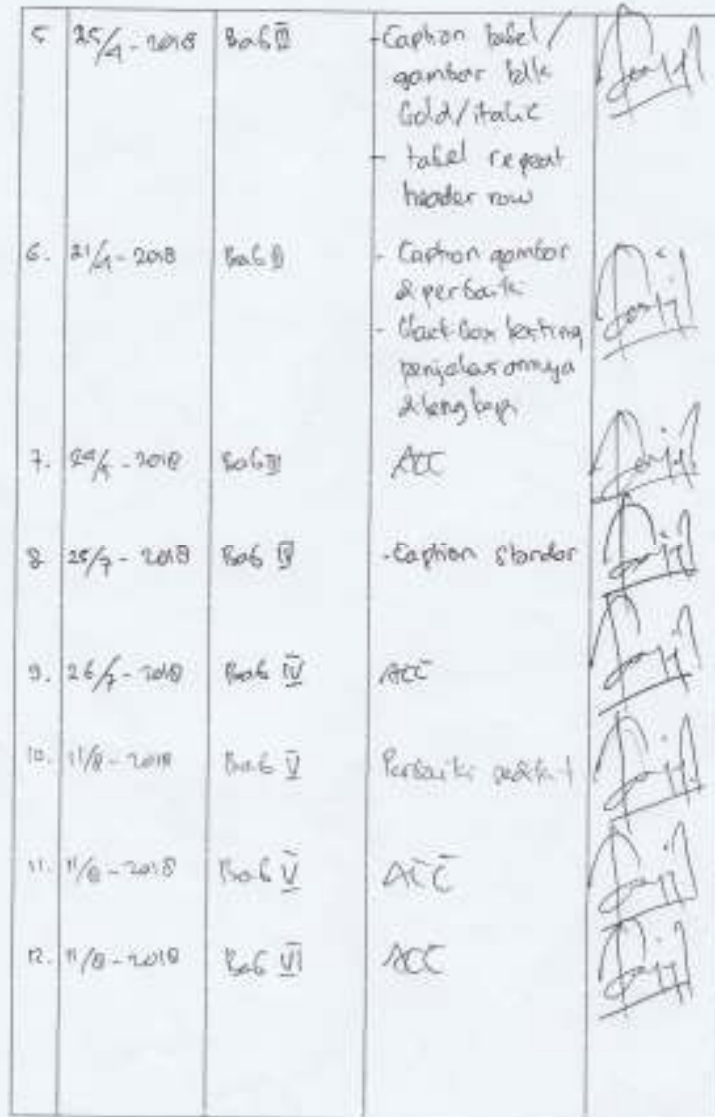 5 25/4-2018 Bab III - Caption tabel /
gambar tdk
bold/italic
- tabel repeat
header row
6. 21/4-2018 Bab III - Caption gambar
diperbaiki
- black box testing
penjelasannya
dilengkapi
7. Bab III ACC
8 25/7-2018 Bab IV - Caption standar
9. 26/7-2018 Bab IV ACC
10. 11/8-2018 Bab V Perbaiki sedikit
11. 11/8-2018 Bab V ACC
12. 11/8-2018 Bab VI ACC